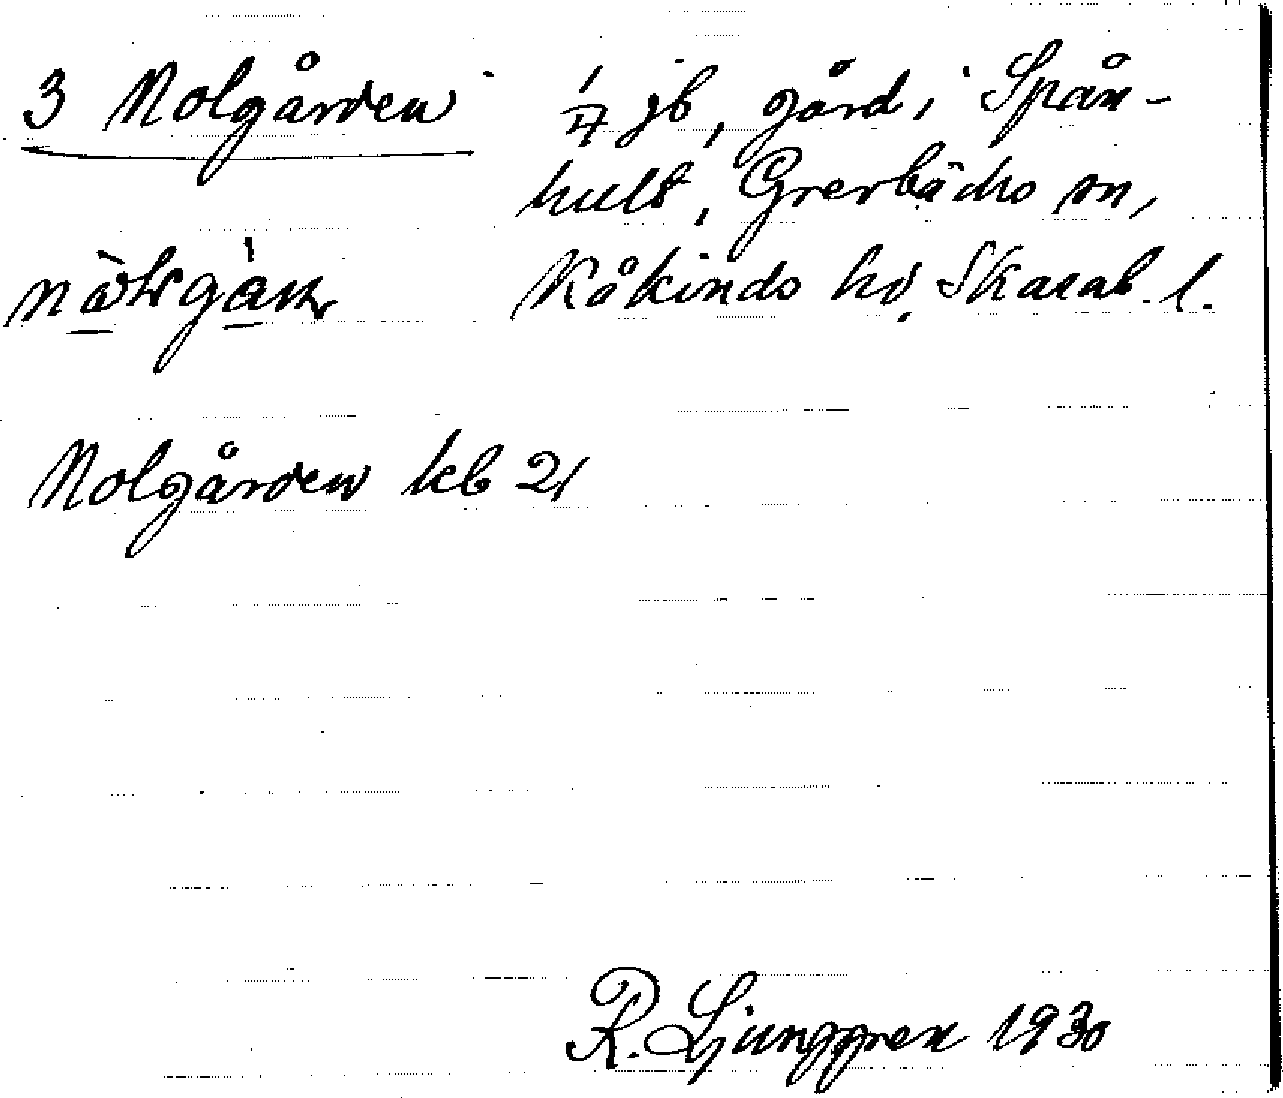 3 Nolgården
1/4 jb, gård i Spån-
hult, Grevbäcks sn,
Kåkinds hd, Skarab. l.
Nolgården kb 21
R. Ljunggren 1930